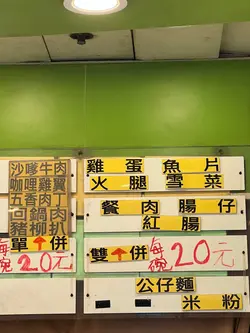 沙嗲牛肉
咖哩雞翼
五香肉丁
回鍋肉
豬柳扒
單↑併
每碗20元
雞蛋 魚片
火腿 雪菜
餐肉腸仔
紅腸
雙↑併 每碗20元
公仔麵
米粉